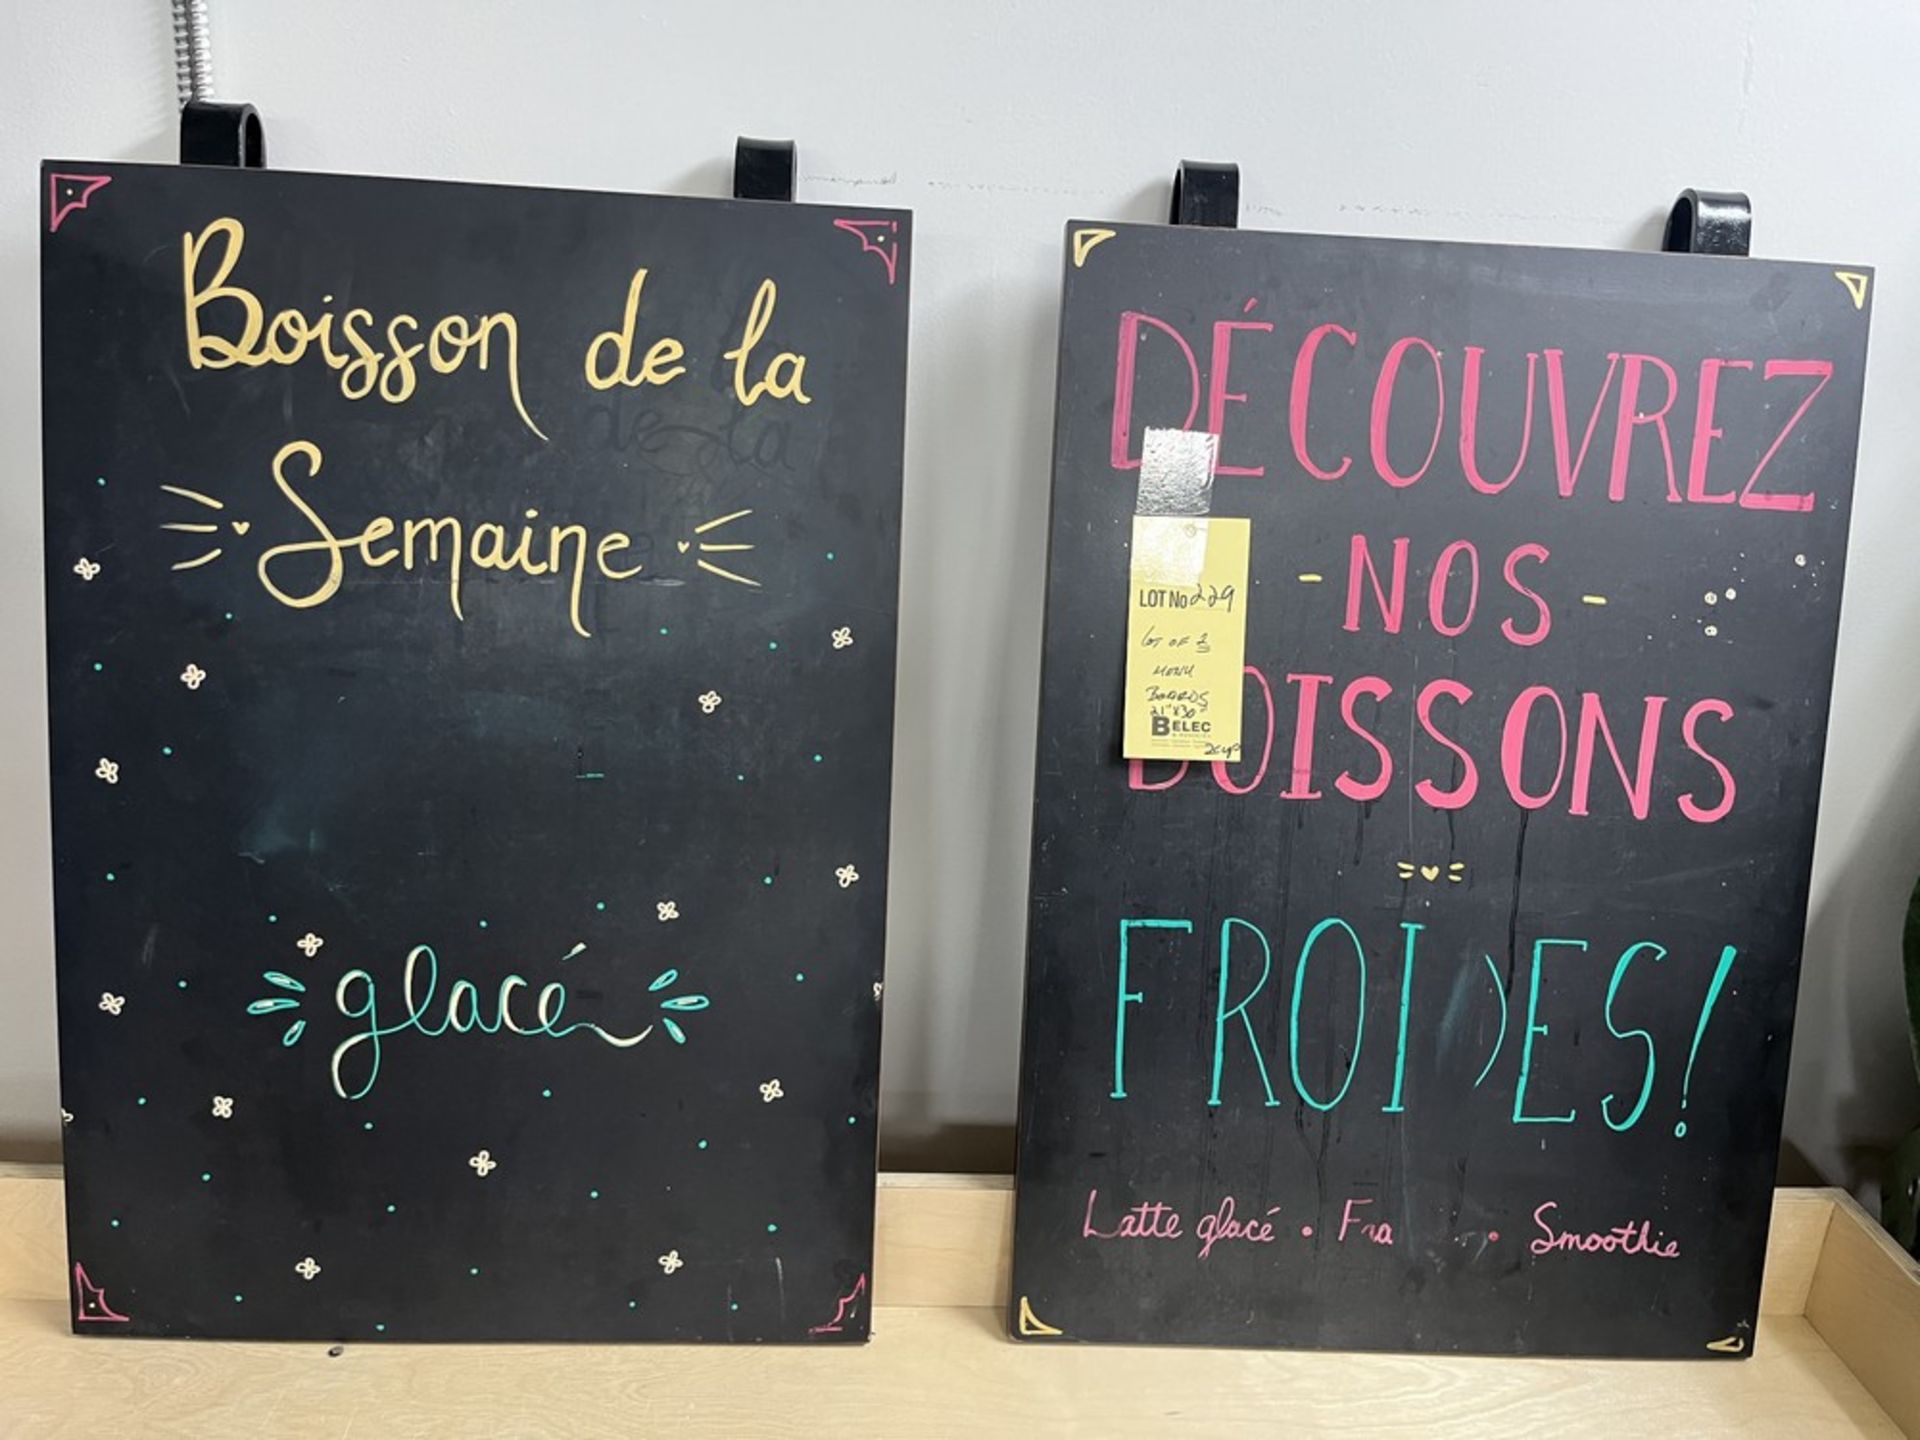 Boisson de la
de la
Semaine
glacé
DÉCOUVREZ
- NOS -
BOISSONS
FROIDES!
Latte glacé • Fra • Smoothie
LOT No 229
LOT OF 2
MENU
BOARDS
21" x 30"
BELEC